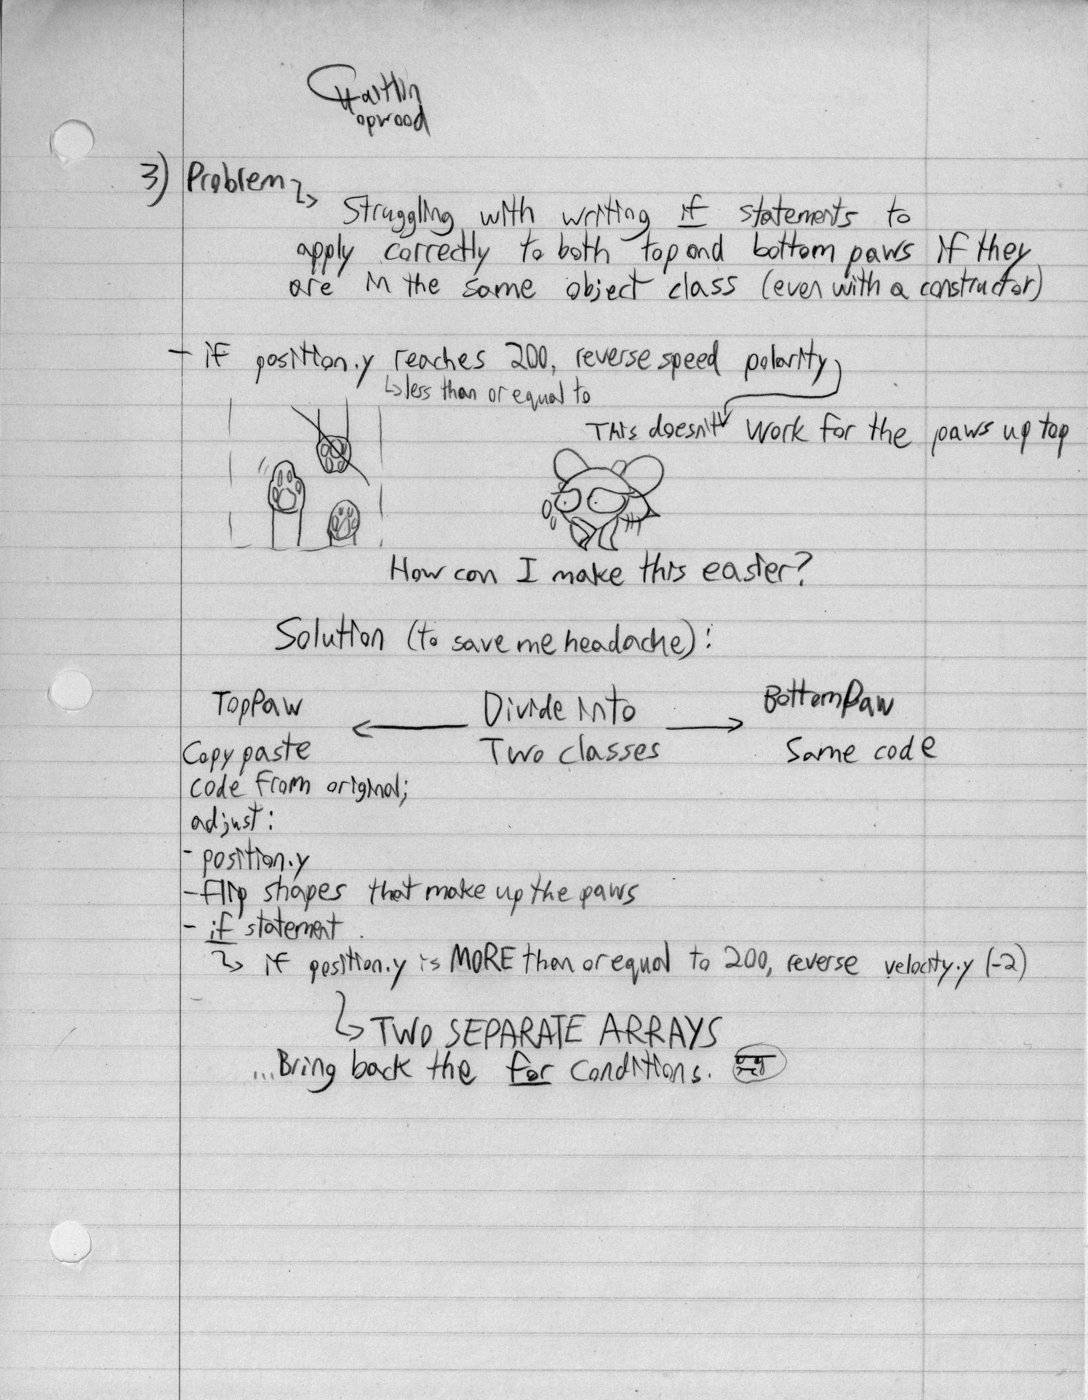 Caitlin
Hopwood
3) Problem
Struggling with writing if statements to
apply correctly to both top and bottom paws if they
are in the same object class (even with a constructor)
- if position.y reaches 200, reverse speed polarity
less than or equal to
This doesn't work for the paws up top
How can I make this easier?
Solution (to save me headache):
TopPaw
Divide into
Two classes
BottomPaw
Same code
Copy paste
code from original;
adjust:
- position.y
- flip shapes that make up the paws
- if statement
if position.y is MORE than or equal to 200, reverse velocity.y (-2)
TWO SEPARATE ARRAYS
...Bring back the for conditions.